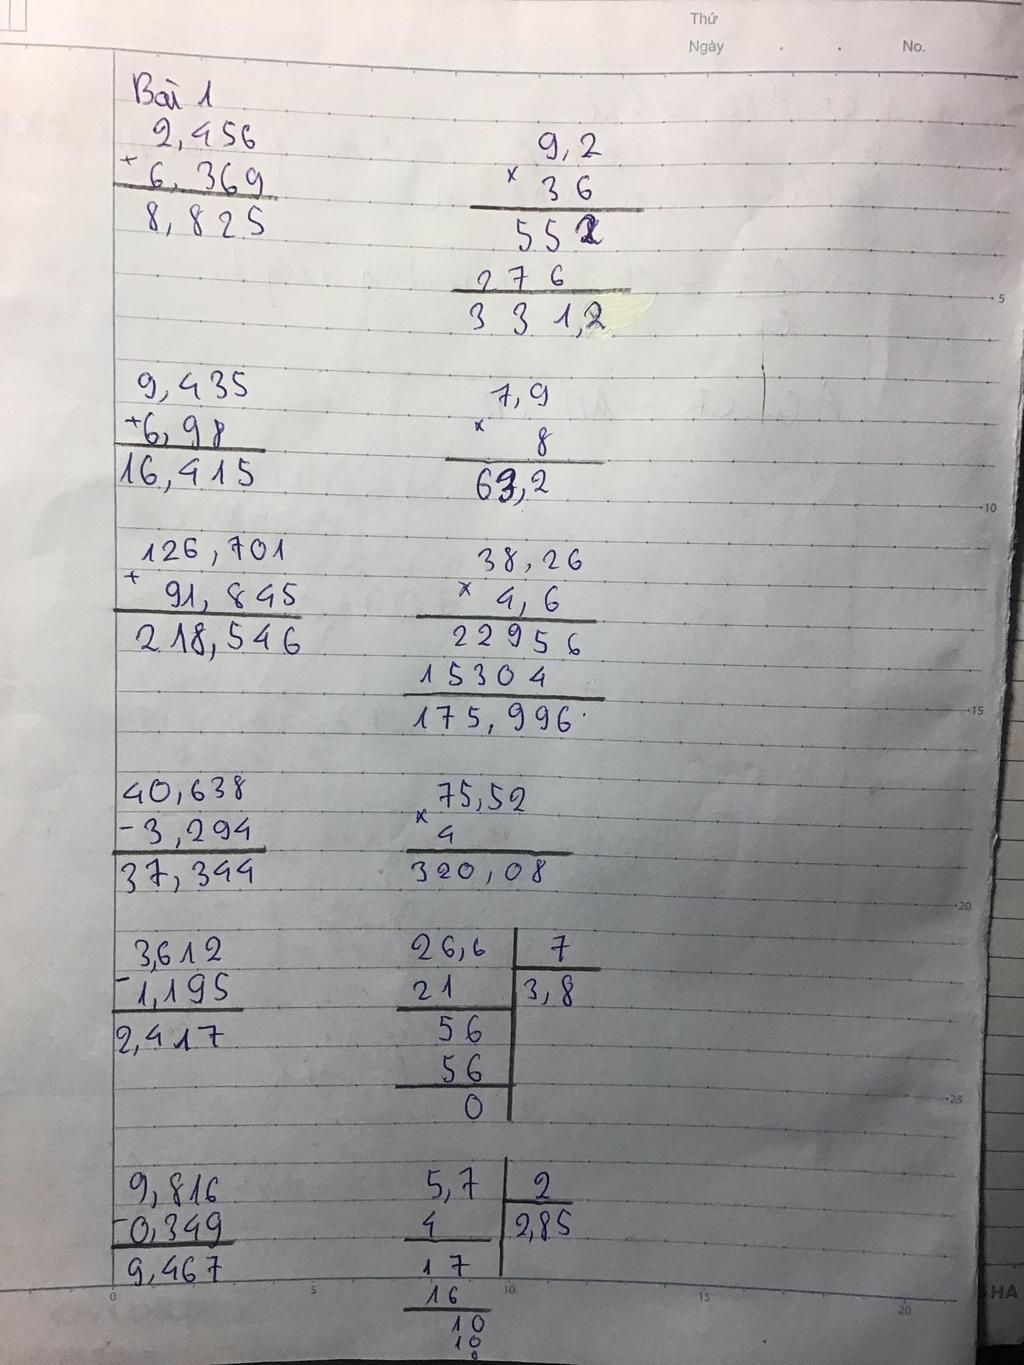 Thứ
Ngày . . No.
Bài 1
2,456
+ 6,369
8,825
9,435
+6,98
16,415
126,701
+ 91,845
218,546
40,638
- 3,294
37,344
3,612
- 1,195
2,417
9,816
- 0,349
9,467
9,2
x 36
552
276
331,2
7,9
x 8
63,2
38,26
x 4,6
22956
15304
175,996
75,52
x 4
320,08
26,6 7
21 3,8
56
56
0
5,7 2
4 2,85
17
16
10
10
0
5
10
15
20
25
0 5 10 15 20
HA